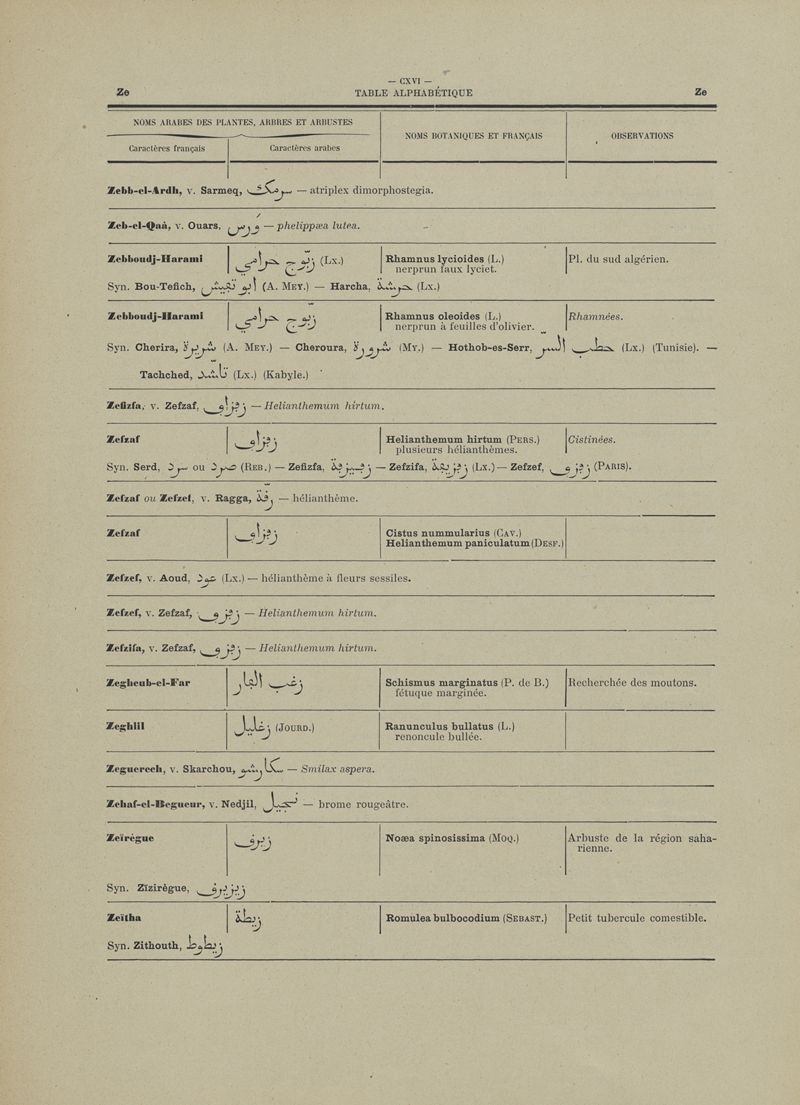 — CXVI —
Ze TABLE ALPHABÉTIQUE Ze
NOMS ARABES DES PLANTES, ARBRES ET ARBUSTES
NOMS BOTANIQUES ET FRANÇAIS
OBSERVATIONS
Caractères français
Caractères arabes
Zebb-el-Ardh, v. Sarmeq, — atriplex dimorphostegia.
Zeb-el-Qaà, v. Ouars, — phelippæa lutea.
Zebboudj-Harami (Lx.) Rhamnus lycioides (L.) Pl. du sud algérien.
nerprun faux lyciet.
Syn. Bou-Tefich, (A. MEY.) — Harcha, (Lx.)
Zebboudj-Harami Rhamnus oleoides (L.) Rhamnées.
nerprun à feuilles d'olivier.
Syn. Cherira, (A. MEY.) — Cheroura, (MY.) — Hothob-es-Serr, (Lx.) (Tunisie). —
Tachched, (Lx.) (Kabyle.)
Zefizfa, v. Zefzaf, — Helianthemum hirtum.
Zefzaf زفزاف Helianthemum hirtum (PERS.) Cistinées.
plusieurs hélianthèmes.
Syn. Serd, سرد ou صرد (REB.) — Zefizfa, — Zefzifa, (Lx.) — Zefzef, (PARIS).
Zefzaf ou Zefzef, v. Ragga, — hélianthème.
Zefzaf زفزاف Cistus nummularius (CAV.)
Helianthemum paniculatum (DESF.)
Zefzef, v. Aoud, عود (Lx.) — hélianthème à fleurs sessiles.
Zefzef, v. Zefzaf, — Helianthemum hirtum.
Zefzifa, v. Zefzaf, — Helianthemum hirtum.
Zegheub-el-Far زغب الفار Schismus marginatus (P. de B.) Recherchée des moutons.
fétuque marginée.
Zeghlil زغليل (JOURD.) Ranunculus bullatus (L.)
renoncule bullée.
Zeguerech, v. Skarchou, — Smilax aspera.
Zehaf-el-Begueur, v. Nedjil, — brome rougeâtre.
Zeïrègue Noæa spinosissima (MOQ.) Arbuste de la région saha-
rienne.
Syn. Zïzirègue,
Zeïtha زيطة Romulea bulbocodium (SEBAST.) Petit tubercule comestible.
Syn. Zithouth, زيطوط